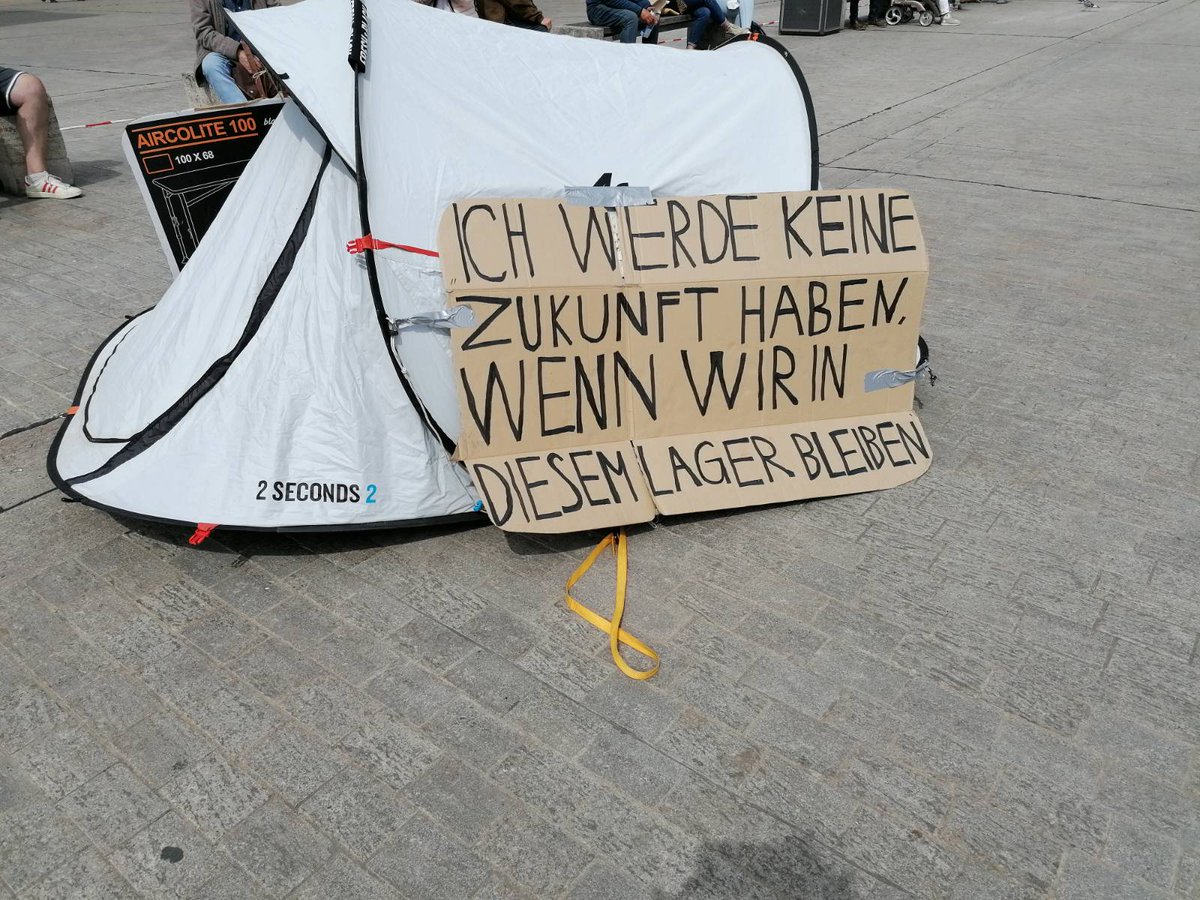 AIRCOLITE 100
100 X 68
ICH WERDE KEINE
ZUKUNFT HABEN,
WENN WIR IN
DIESEM LAGER BLEIBEN
2 SECONDS 2